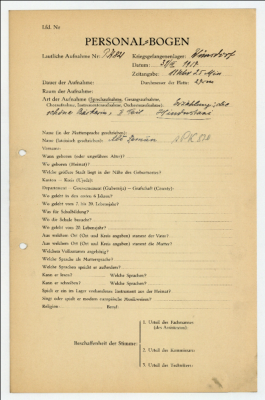 Lfd. Nr
PERSONAL-BOGEN
Lautliche Aufnahme Nr.:
Kriegsgefangenenlager:
Datum:
Zeitangabe:
Dauer der Aufnahme:
Durchmesser der Platte:
Raum der Aufnahme:
Art der Aufnahme (Sprechaufnahme, Gesangsaufnahme,
Choraufnahme, Instrumentenaufnahme, Orchesteraufnahme):
Name (in der Muttersprache geschrieben):
Name (lateinisch geschrieben):
Vorname:
Wann geboren (oder ungefähres Alter)?
Wo geboren (Heimat)?
Welche größere Stadt liegt in der Nähe des Geburtsortes?
Kanton — Kreis (Ujedz):
Departement — Gouvernement (Gubernija) — Grafschaft (County):
Wo gelebt in den ersten 6 Jahren?
Wo gelebt vom 7. bis 20. Lebensjahr?
Was für Schulbildung?
Wo die Schule besucht?
Wo gelebt vom 20. Lebensjahr?
Aus welchem Ort (Ort und Kreis angeben) stammt der Vater?
Aus welchem Ort (Ort und Kreis angeben) stammt die Mutter?
Welchem Volksstamm angehörig?
Welche Sprache als Muttersprache?
Welche Sprachen spricht er außerdem?
Kann er lesen? Welche Sprachen?
Kann er schreiben? Welche Sprachen?
Spielt er ein im Lager vorhandenes Instrument aus der Heimat?
Singt oder spielt er modern europäische Musikweisen?
Religion: Beruf:
Beschaffenheit der Stimme:
1. Urteil des Fachmannes
(des Assistenten):
2. Urteil des Kommissars:
3. Urteil des Technikers: